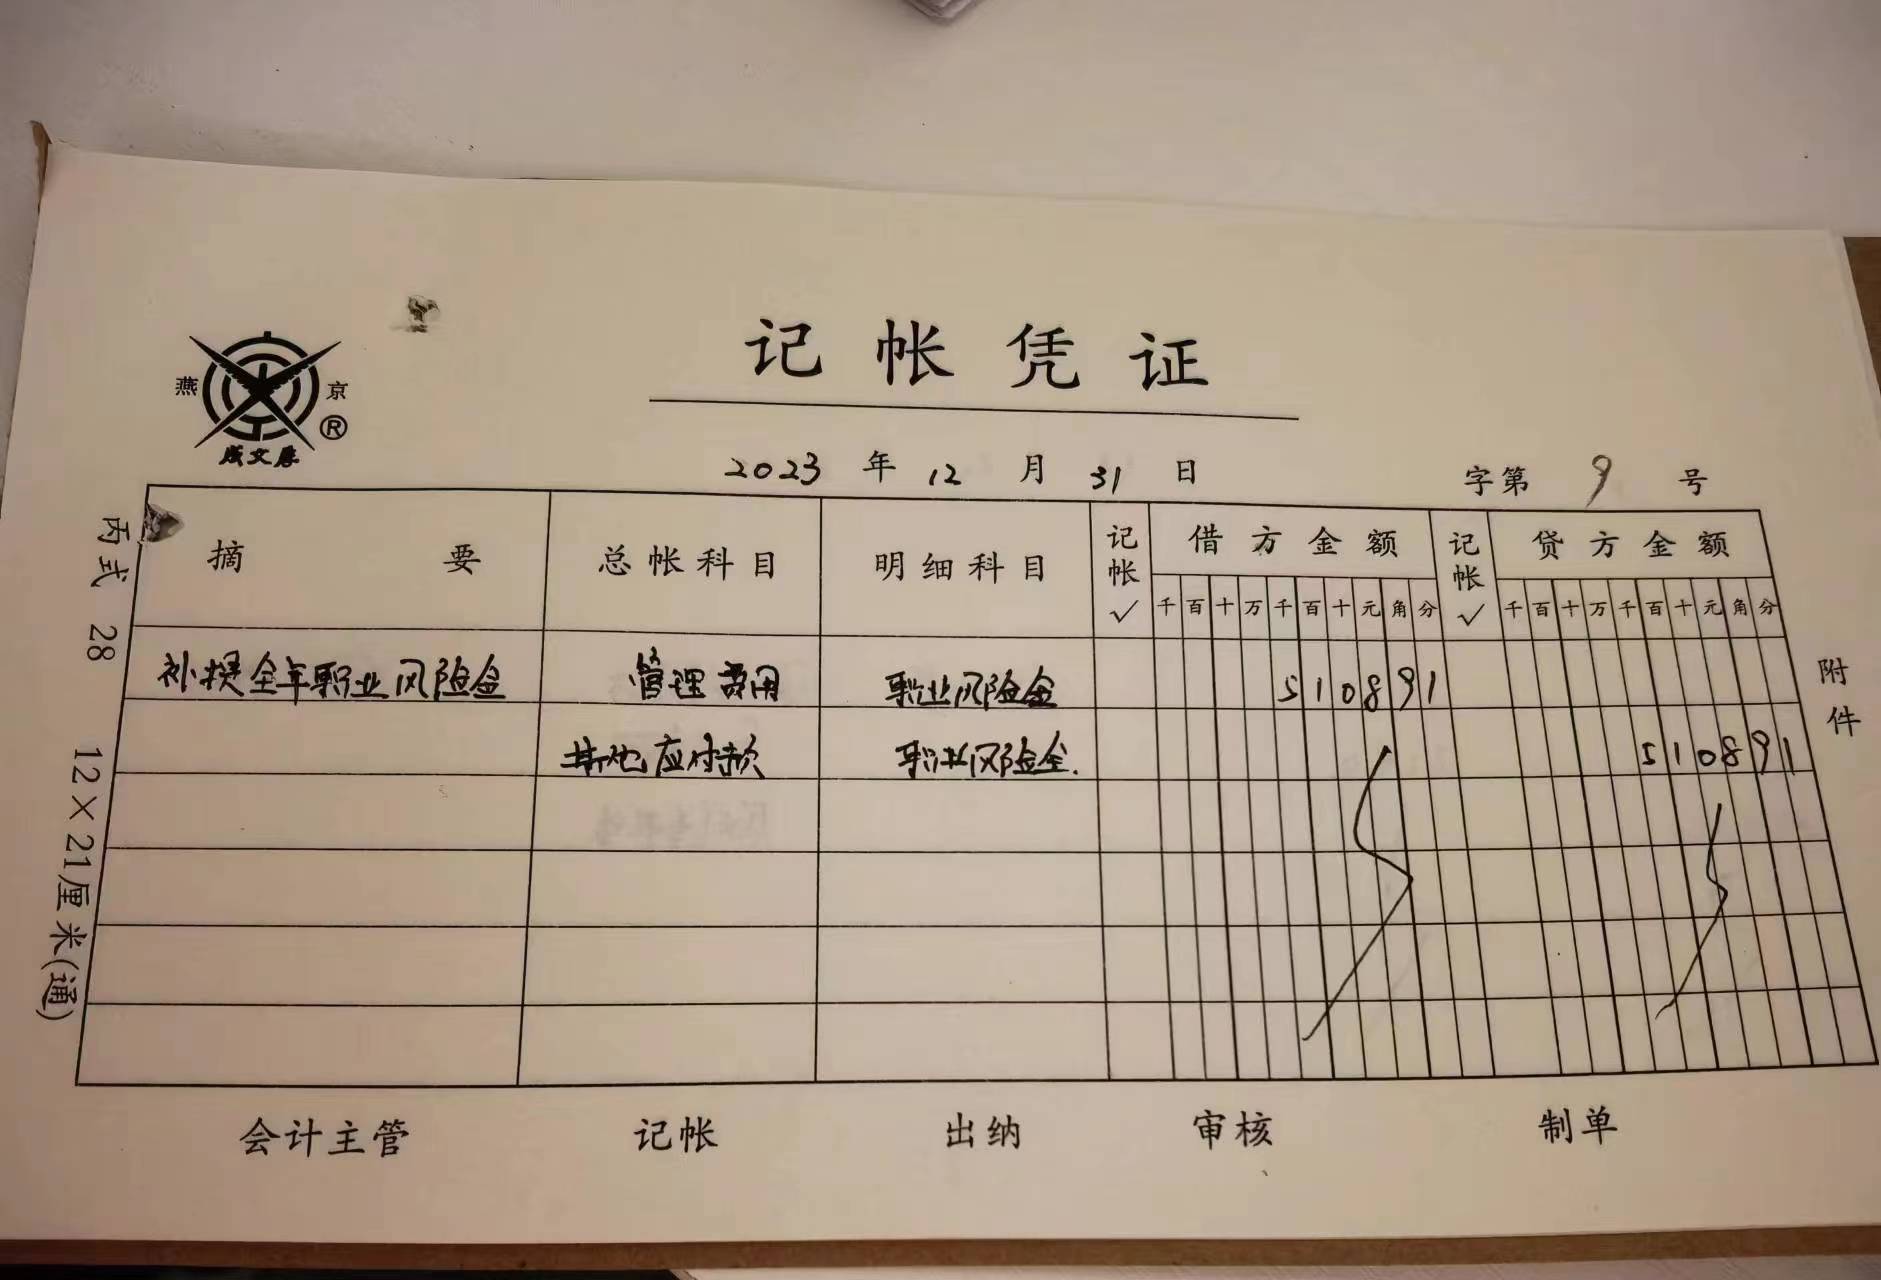 记帐凭证
燕 京
®
成文厚
2023 年 12 月 31 日
字第 9 号
丙式 28 12×21厘米(通)
摘要 总帐科目 明细科目 记帐✓ 借方金额 记帐✓ 贷方金额
千 百 十 万 千 百 十 元 角 分 千 百 十 万 千 百 十 元 角 分
补提全年职业风险金 管理费用 职业风险金 510891
其他应付款 职业风险金. 510891
附件
会计主管 记帐 出纳 审核 制单